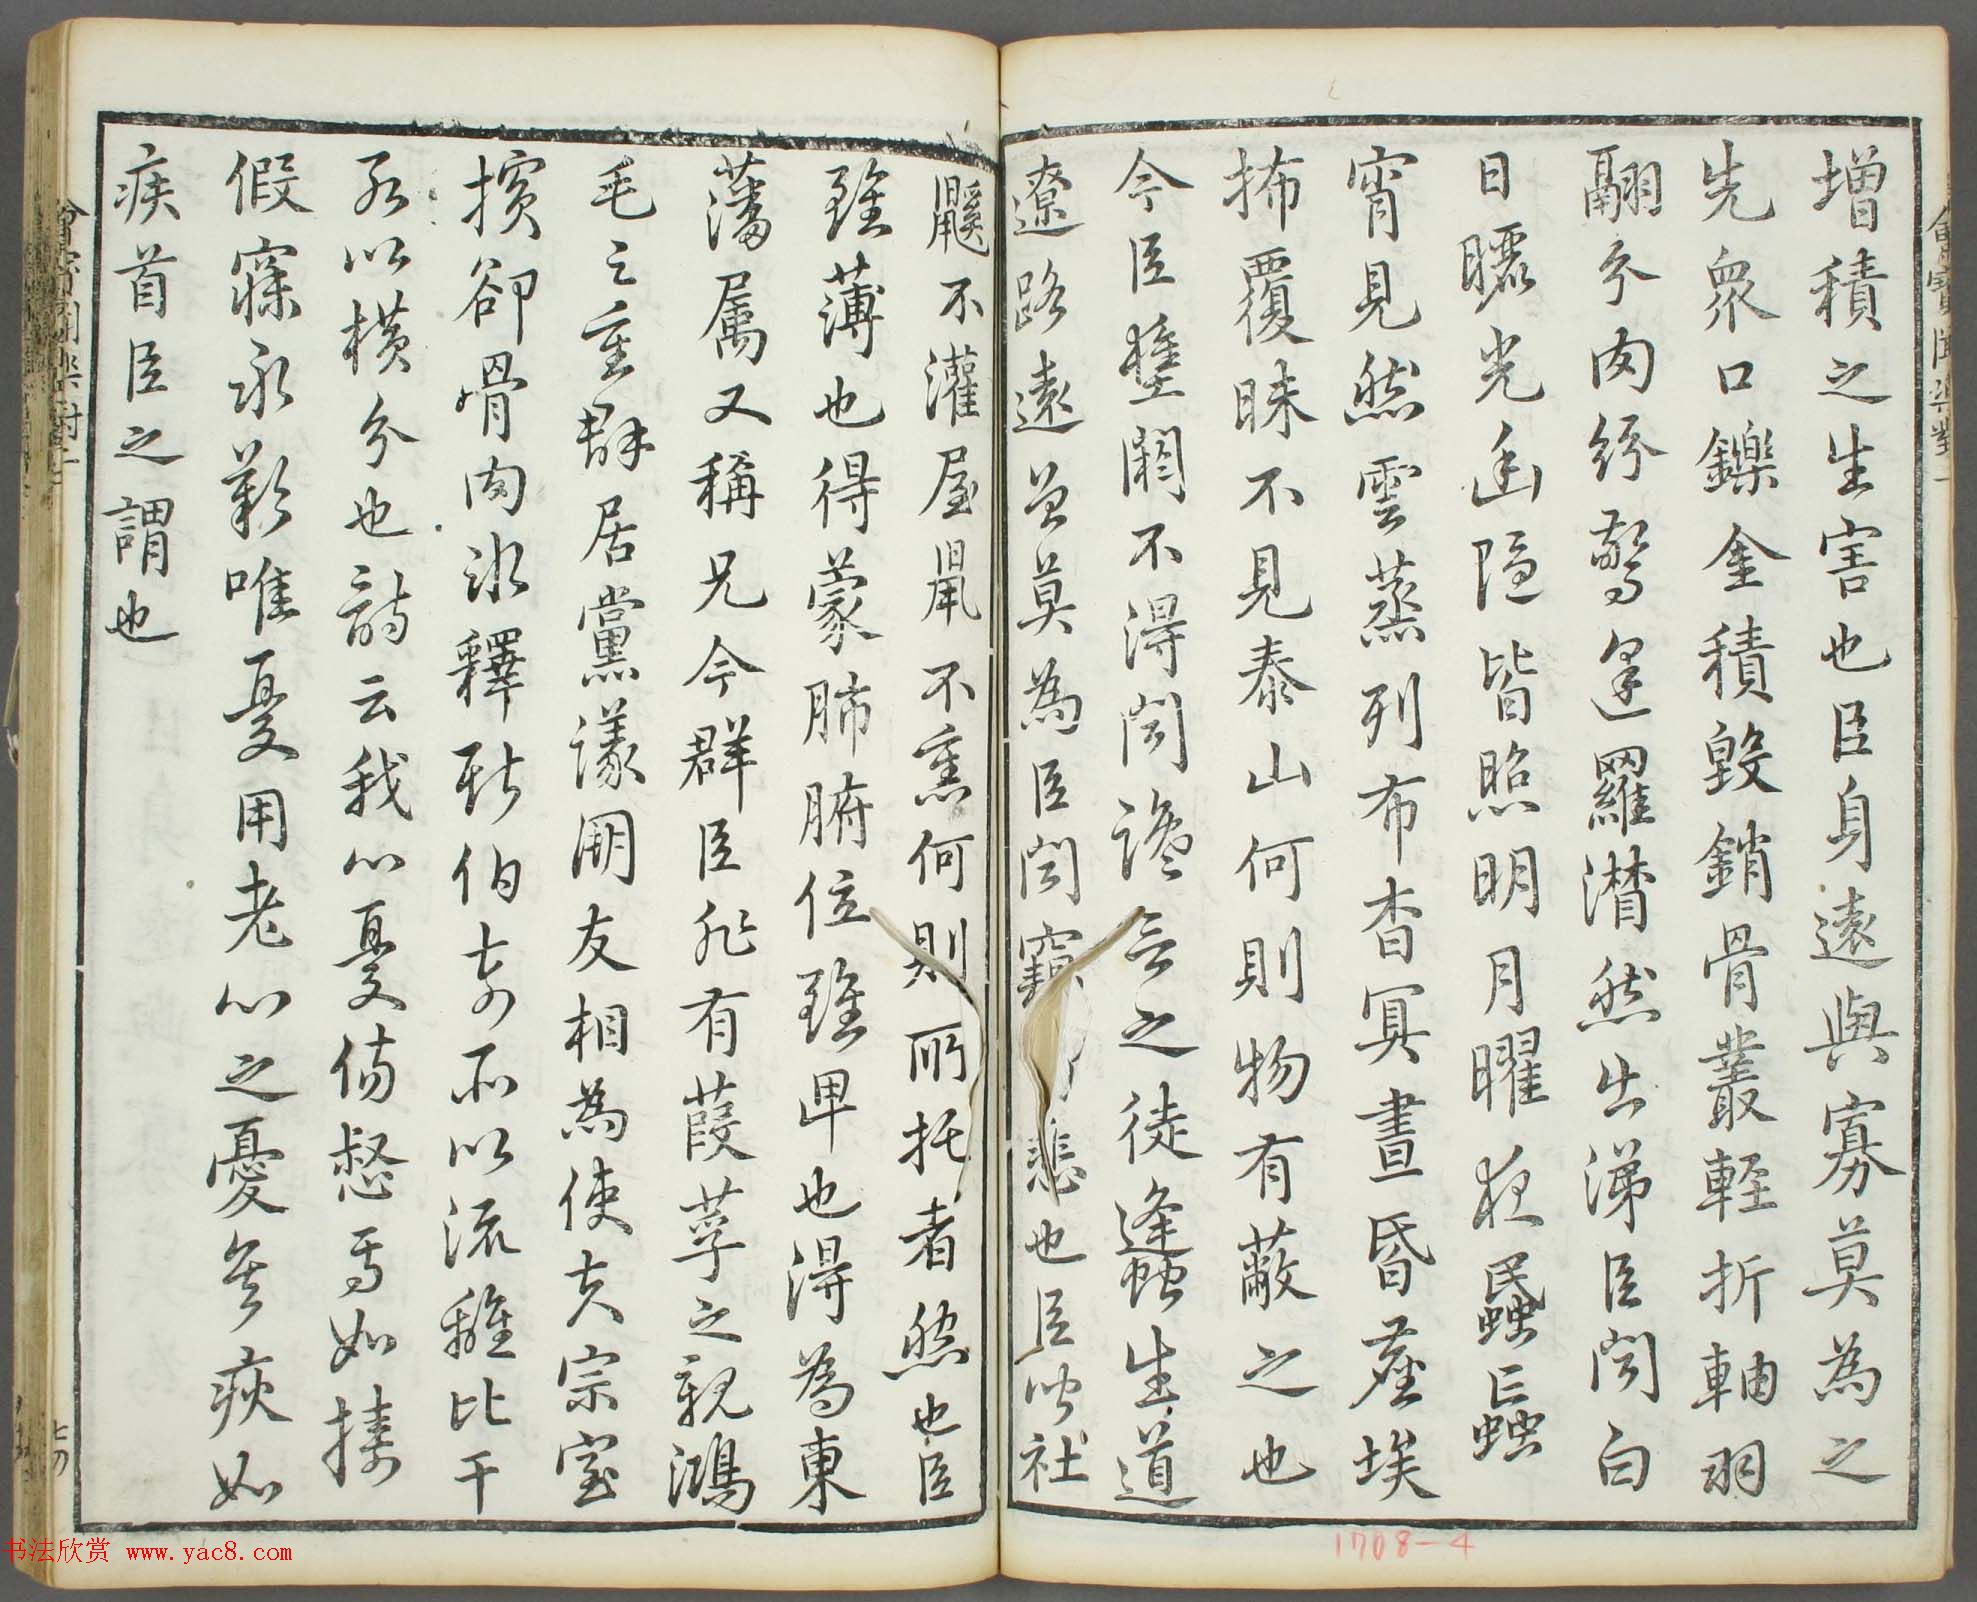 增積之生害也臣身遠與寡莫為之
先衆口鑠金積毀銷骨叢輕折軸羽
翮飛肉紛驚逢羅潸然出涕臣聞白
日曬光幽隱皆照明月曜夜蟁蝱
宵見然雲蒸列布杳冥晝昏塵埃
抪覆昧不見泰山何則物有蔽之也
今臣壅閼不得聞讒言之徒蠭生道
遼路遠曾莫為臣聞竊悲也臣聞社
鼷不灌屋鼠不熏何則所托者然也臣
雖薄也得蒙肺腑位雖卑也得為東
藩屬又稱兄今群臣非有葭莩之親鴻
毛之重群居黨議朋友相為使夫宗室
擯卻骨肉冰釋斯伯奇所以流離比干
所以橫分也詩云我心憂傷惄焉如擣
假寐永歎唯憂用老心之憂矣疢如
疾首臣之謂也
1708-4
书法欣赏 www.yac8.com